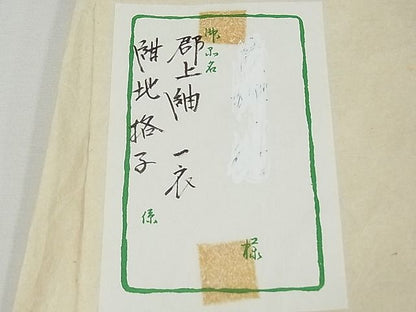 様
御品名
郡上紬 一衣
紺地格子
係